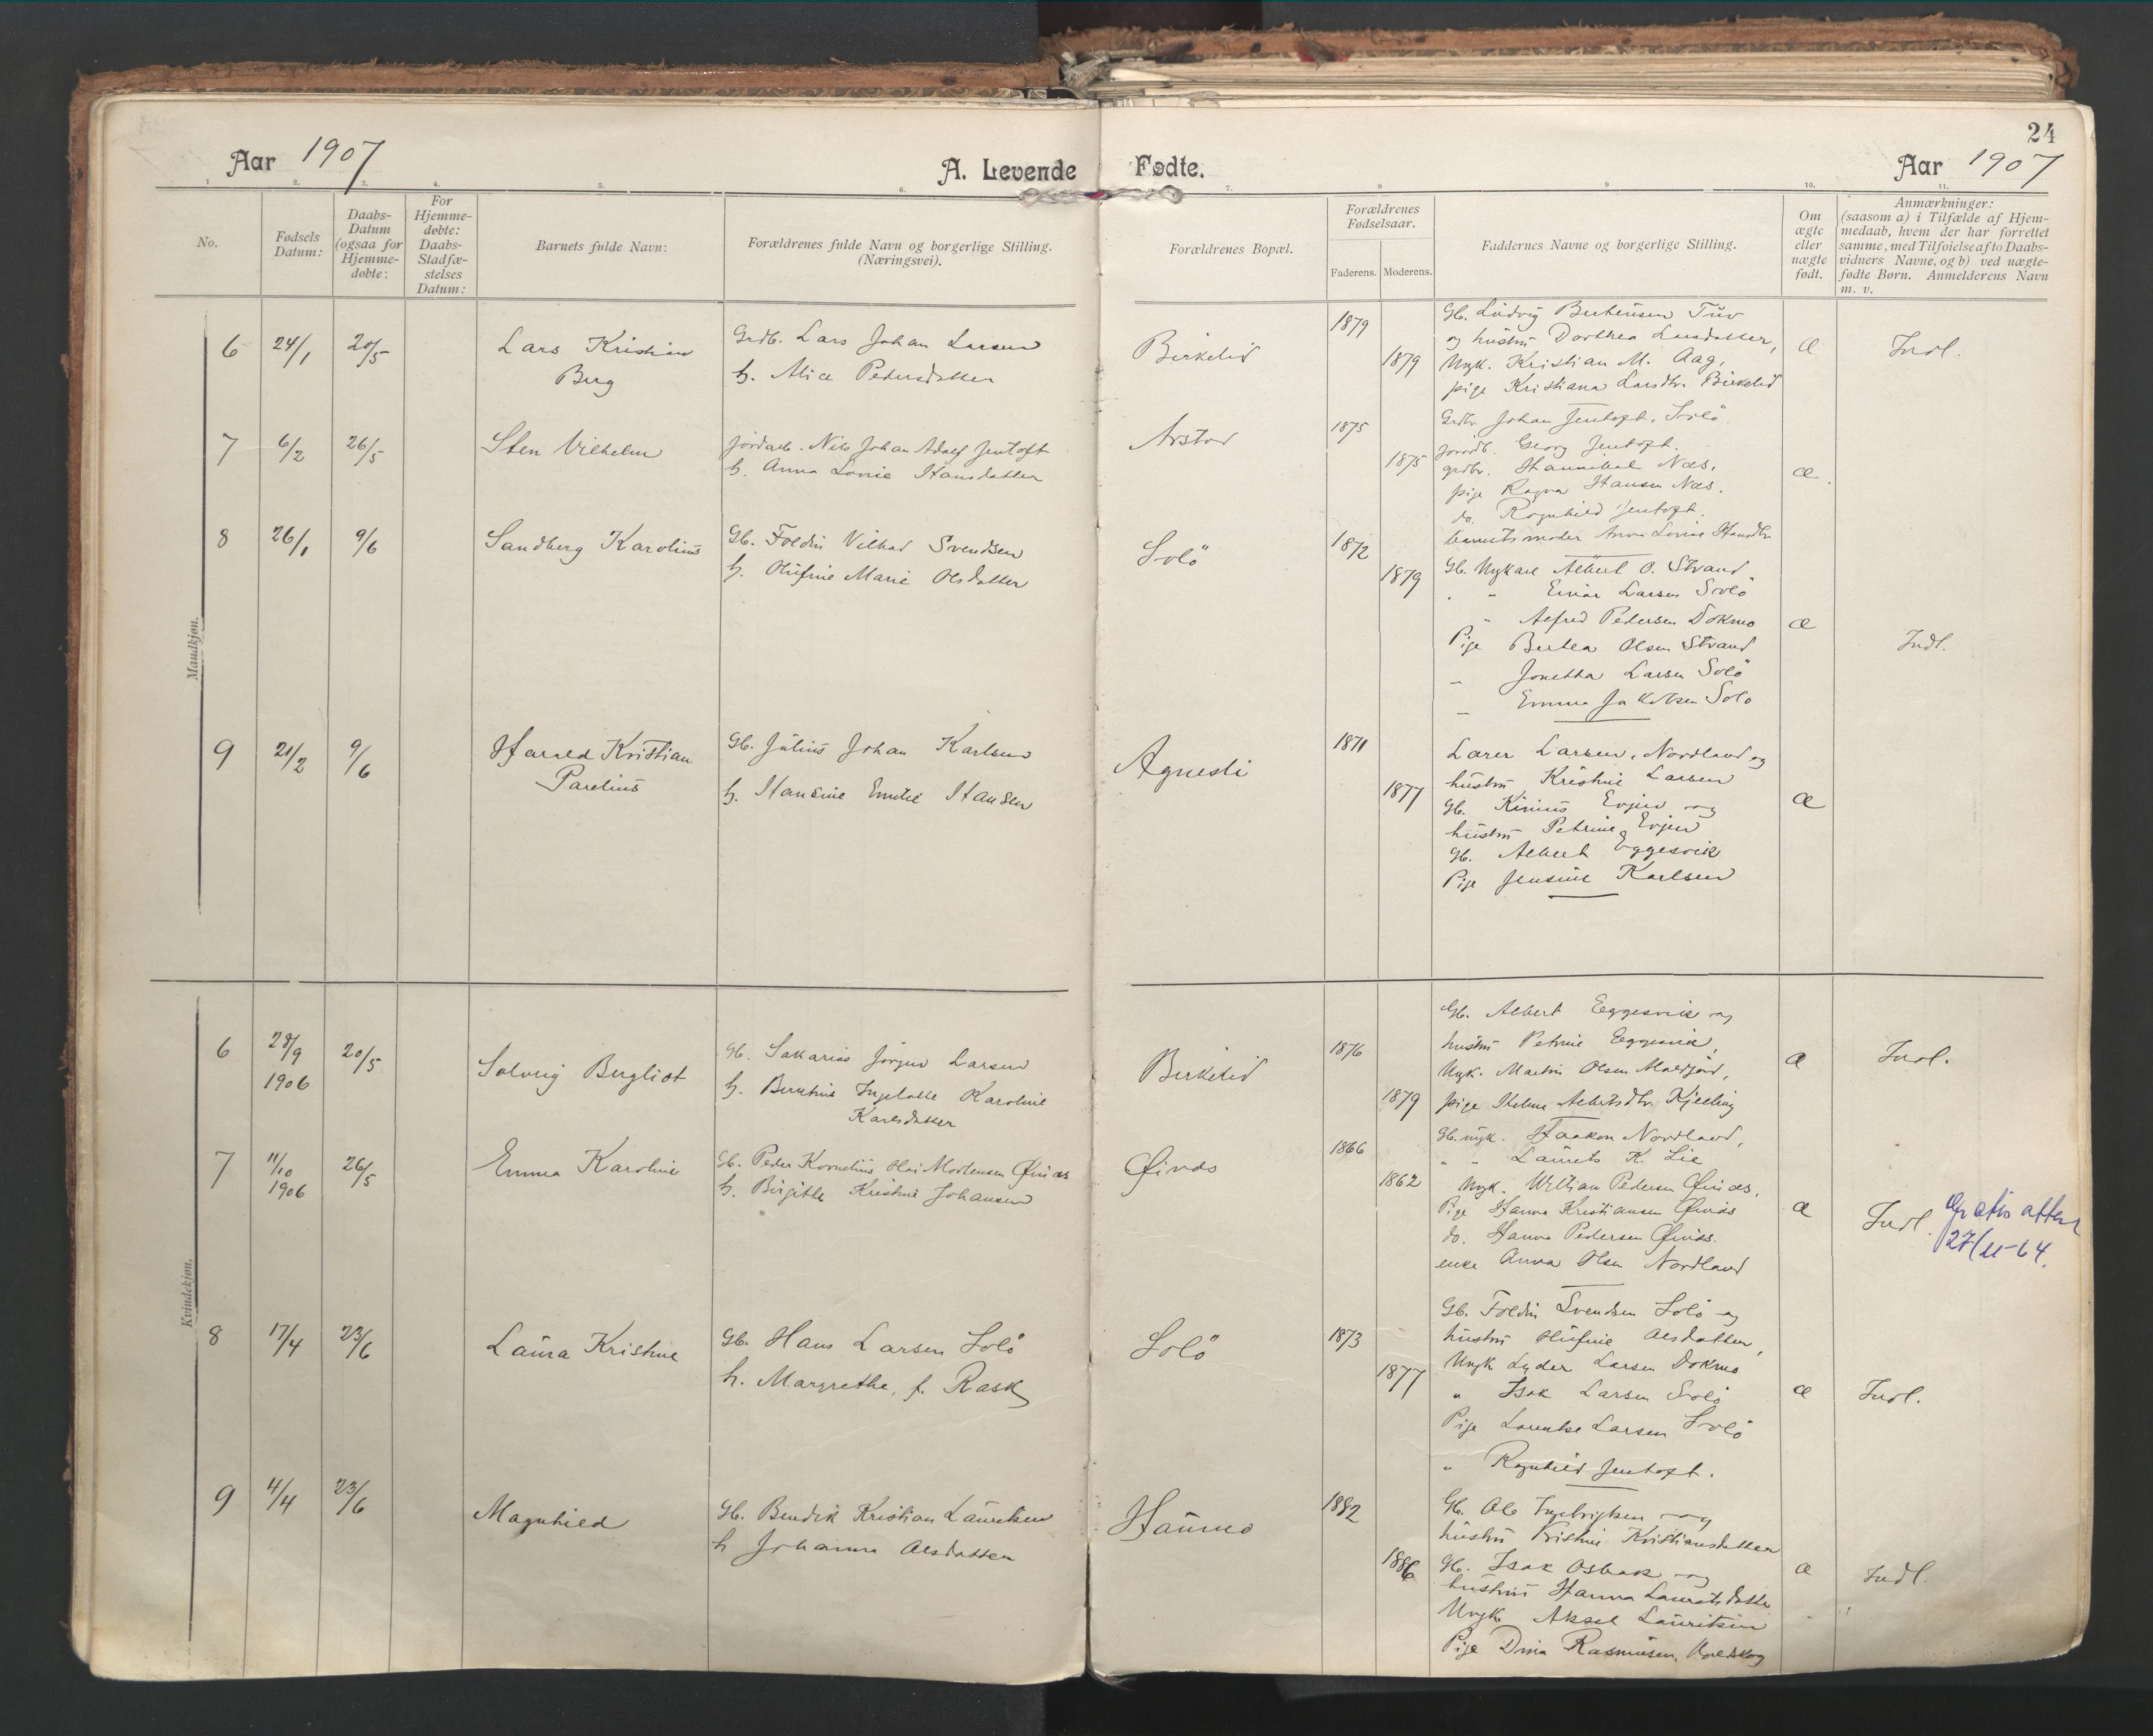 24
Aar 1907
A. Levende Fødte.
Aar 1907
1. 2. 3. 4. 5. 6. 7. 8 9 10. 11.
No.
Fødsels Datum:
Daabs-Datum (ogsaa for Hjemme-døbte:
For Hjemme-døbte: Daabs-Stadfæ-stelses Datum:
Barnets fulde Navn:
Forældrenes fulde Navn og borgerlige Stilling. (Næringsvei).
Forældrenes Bopæl.
Forældrenes Fødselsaar.
Faderens. Moderens.
Faddernes Navne og borgerlige Stilling.
Om ægte eller uægte født.
Anmærkninger: (saasom a) i Tilfælde af Hjem-medaab, hvem der har forrettet samme, med Tilføielse af to Daabs-vidners Navne, og b) ved uægte-fødte Børn. Anmelderens Navn m. v.
Mandkjøn.
6 24/1 20/5
Lars Kristian
Berg
Grdb. Lars Johan Larsen
h. Alice Pedersdatter
Birkelid
1879
1879
Gb. Ludvig Berteusen Tuv
og hustru Dorthea Larsdatter,
Ungk. Kristian M. Aag,
pige Kristiana Larsdtr. Birkelid
æ
Indl.
7 6/2 26/5
Sten Vilhelm
jordarb. Nils Johan Adolf Jentoft
h. Anna Lovise Hansdatter
Arstad
1875
1875
Grdbr. Johan Jentoft, Solö
jordb. Georg Jentoft.
grdbr. Hannibal Næs,
pige Ragna Hansen Næs,
do. Ragnhild Jentoft.
barnets moder Anna Lovise Hansdtr
æ.
8 26/1 9/6
Sandberg Karolius
Gb. Foldin Vilhad Svendsen
h. Olufine Marie Olsdatter
Solö
1872
1879
Gb. Ungkarl Albert O. Strand
" " Einar Larsen Solö
" Alfred Pedersen Dokmo
Pige Bertea Olsen Strand
" Jonetta Larsen Solö
" Emma Jakobsen Solö
æ
Indl.
9 21/2 9/6
Harald Kristian
Parelius
Gb. Julius Johan Karlsen
h. Hansine Emilie Hansen
Agnesli
1871
1877
Lærer Larsen, Nordland og
hustru Kristine Larsen
Gb. Kinius Evjen og
hustru Petrine Evjen
Gb. Albert Eggesvik
Pige Jensine Karlsen
æ
Kvindekjøn.
6 28/9 1906 20/5
Solveig Bergliot
Gb. Sakarias Jørgen Larsen
h. Berntine Ingelotte Karoline
Karlsdatter
Birkelid
1876
1879
Gb. Albert Eggesvik og
hustru Petrine Eggesvik,
Ungk. Martin Olsen
pige Helene Albertsdtr. Kjelling
æ
Indl.
7 11/10 1906 26/5
Emma Karoline
Gb. Peder Kornelius Mortensen Øinæs
h. Birgitte Kristine Johansen
Øinæs
1866
1862
Gb. ungk. Haakon Nordland,
" " Laurets K. Lie
Ungk. William Pedersen Øinæs,
Pige Hanna Kristiansen Øinæs
do. Hanna Pedersen Øinæs.
enke Anna Olsen Nordland
æ
Indl.
Gratis attest
27/11-64.
8 17/4 23/6
Laura Kristine
Gb. Hans Larsen Solö
h. Margrethe, f. Rask
Solö
1873
1877
Gb. Foldin Svendsen Solö og
hustru Olufine Olsdatter,
Ungk Lyder Larsen Dokmo
" Isak Larsen Solö
Pige Lorentse Larsen Solö
" Ragnhild Jentoft.
æ
Indl.
9 4/4 23/6
Magnhild
Gb. Bendik Kristian Lauritsen
h Johanna Olsdatter
Haumo
1882
1886
Gb. Ole Ingebrigtsen og
hustru Kristine Kristiansdatter
Gb. Isak Osbak og
hustru Hanna Lauritsdatter
Ungk Aksel Lauritsen
Pige Dina Rasmusen,
æ
Indl.